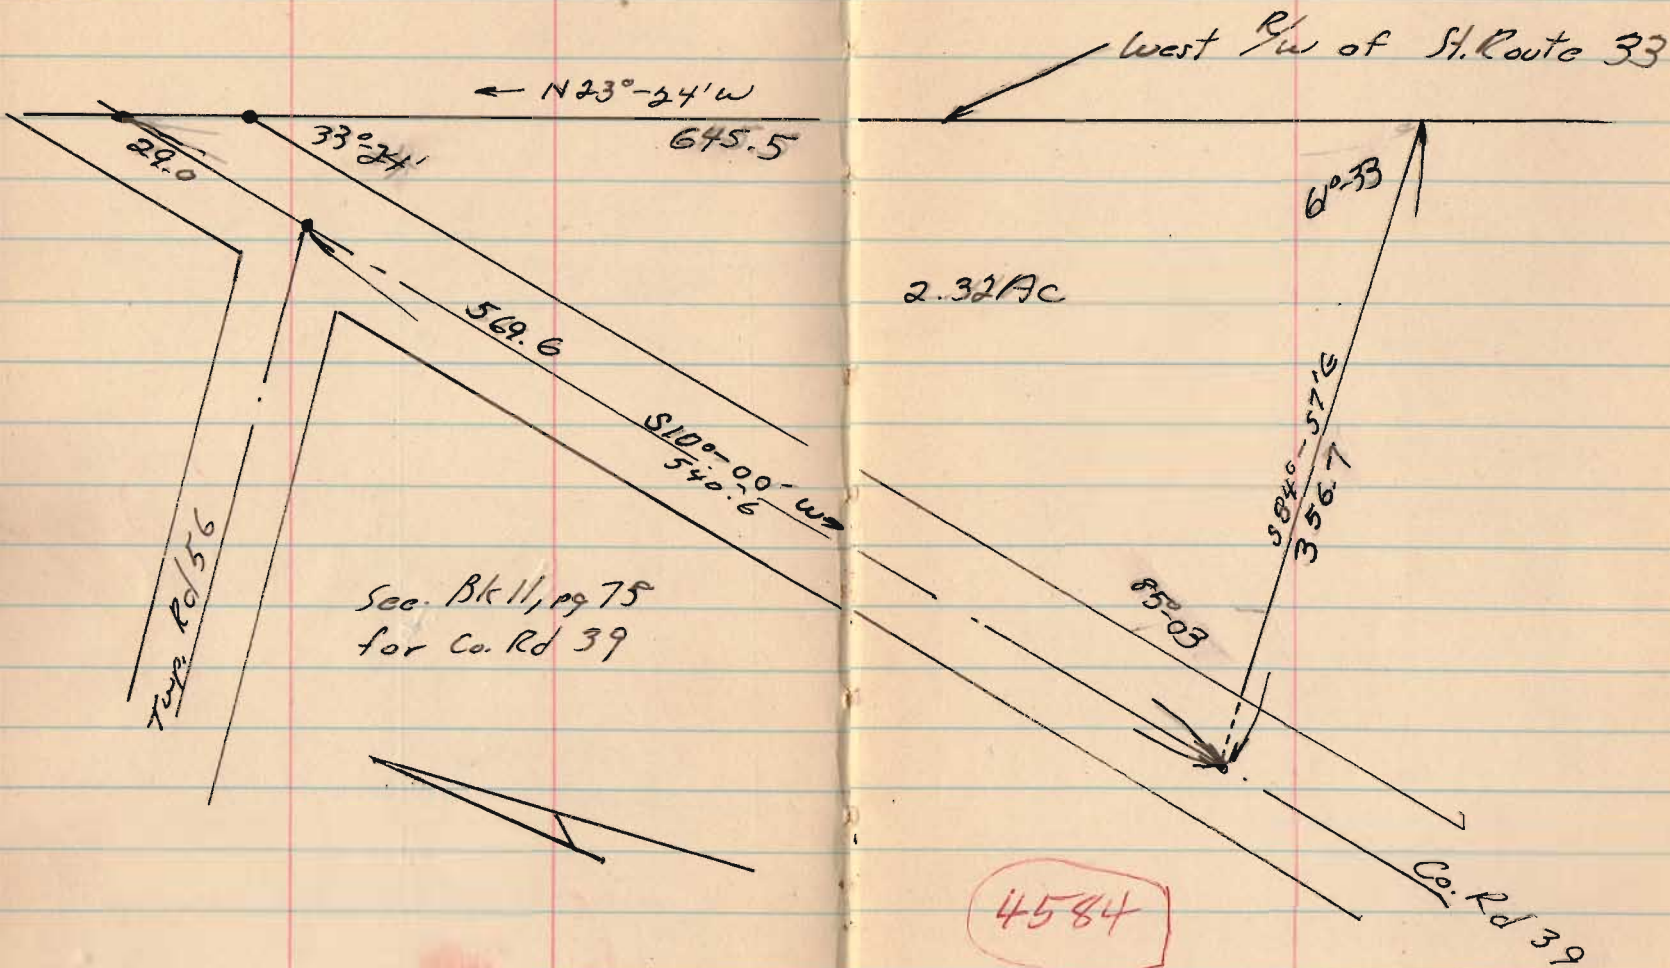 West R/W of St. Route 33
← N23°-24'W
645.5
33°-24'
29.0
61°-33
2.32 Ac
569.6
S10°-00'-W
540.6
S84°-57'E
356.7
85°-03
Twp. Rd 56
See. Bk 11, pg 75
for Co. Rd 39
Co. Rd 39
4584